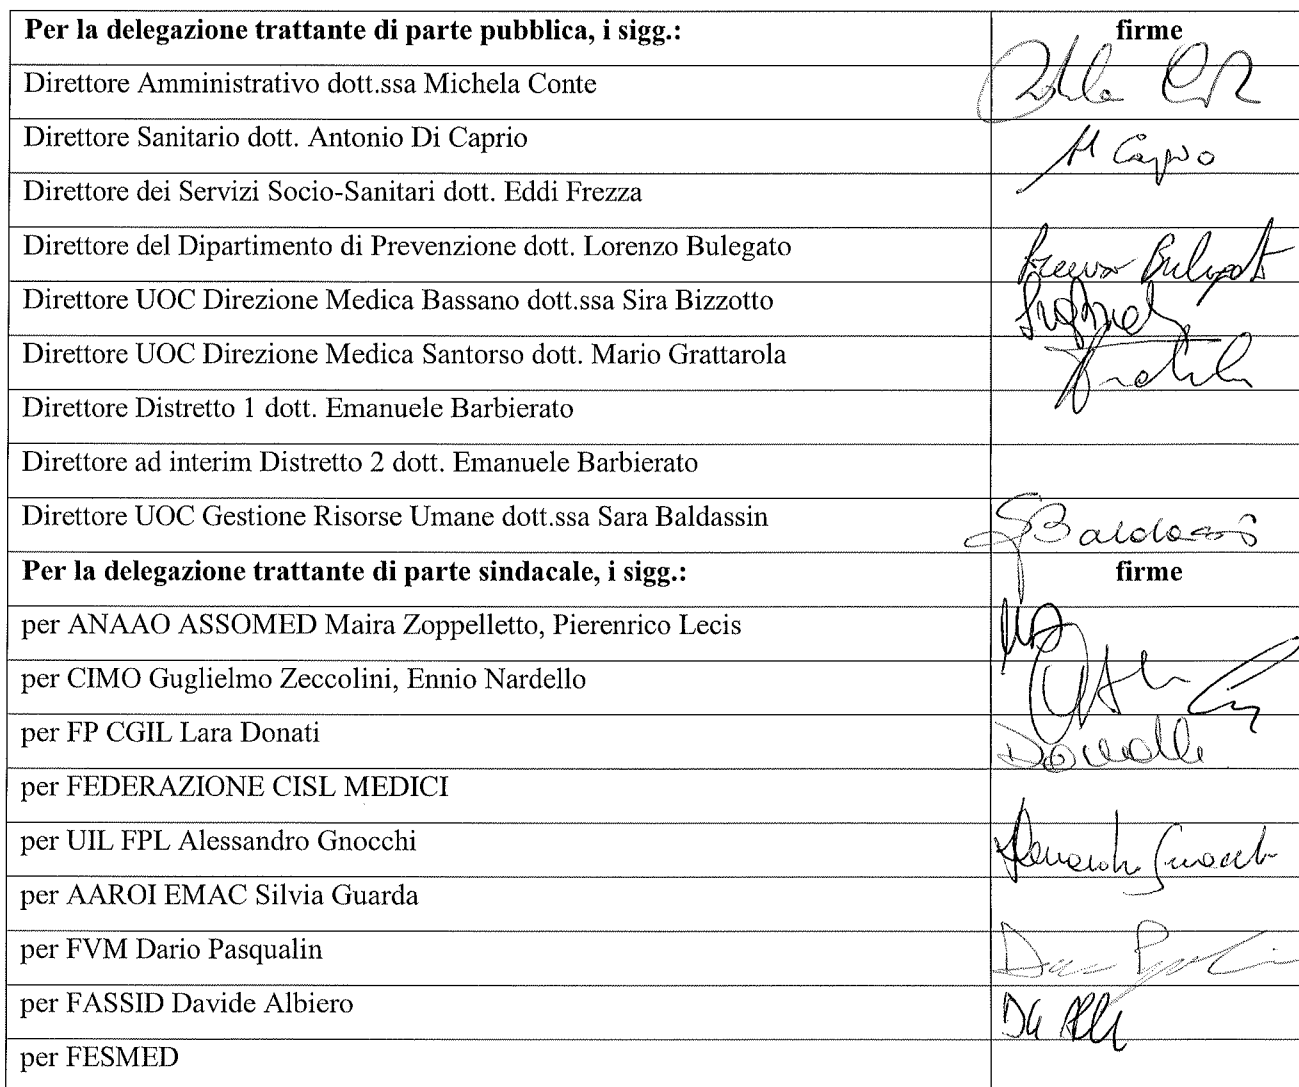 Per la delegazione trattante di parte pubblica, i sigg.: firme
Direttore Amministrativo dott.ssa Michela Conte
Direttore Sanitario dott. Antonio Di Caprio
Direttore dei Servizi Socio-Sanitari dott. Eddi Frezza
Direttore del Dipartimento di Prevenzione dott. Lorenzo Bulegato
Direttore UOC Direzione Medica Bassano dott.ssa Sira Bizzotto
Direttore UOC Direzione Medica Santorso dott. Mario Grattarola
Direttore Distretto 1 dott. Emanuele Barbierato
Direttore ad interim Distretto 2 dott. Emanuele Barbierato
Direttore UOC Gestione Risorse Umane dott.ssa Sara Baldassin
Per la delegazione trattante di parte sindacale, i sigg.: firme
per ANAAO ASSOMED Maira Zoppelletto, Pierenrico Lecis
per CIMO Guglielmo Zeccolini, Ennio Nardello
per FP CGIL Lara Donati
per FEDERAZIONE CISL MEDICI
per UIL FPL Alessandro Gnocchi
per AAROI EMAC Silvia Guarda
per FVM Dario Pasqualin
per FASSID Davide Albiero
per FESMED